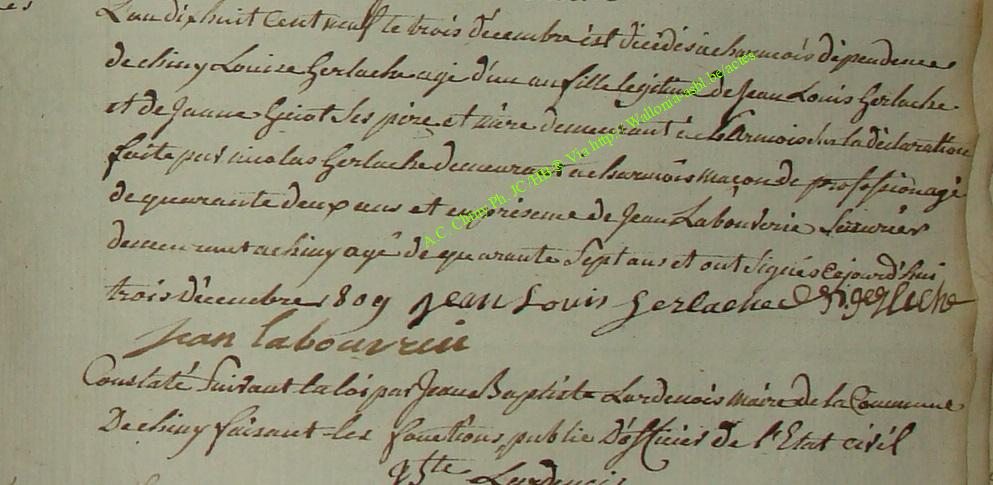 L'an dix huit cent neuf le trois décembre est décédés a charmois dépendence
de chiny Louise Gerlache agé d'un an fille legitime de Jean Louis Gerlache
et de Jeanne Giot ses père et mère demeurant à charmois sur la déclaration
faite par nicolas Gerlache demeurant a charmois maçon de profession agé
de quarante deux ans et en présence de Jean Labouverie
demeurant a chiny agé de quarante Sept ans et ont signés cejourd'hui
trois décembre 1809 Jean Louis Gerlache
Jean labouvrie
Constaté Suivant la loi par Jean Baptiste Lardenois maire de la Commune
De chiny faisant les fonctions public D'officier de l'Etat civil
Bste Lardenois
A.C. Chiny Ph. JC/HB © Via http://Wallonia-asbl.be/actes